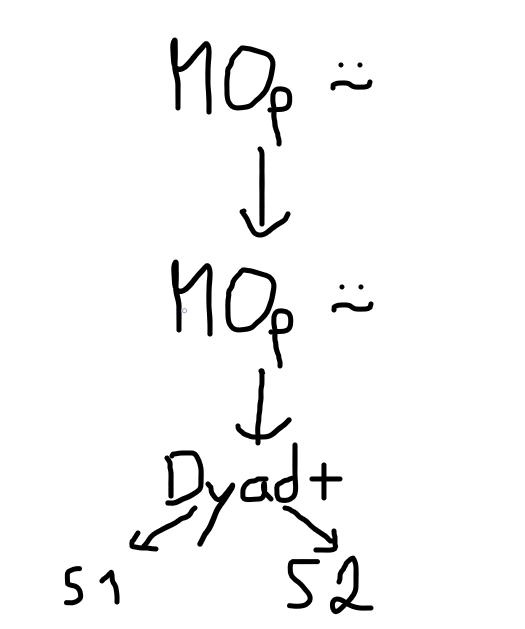 MOp ~̈
MOp ~̈
Dyad+
S1 S2